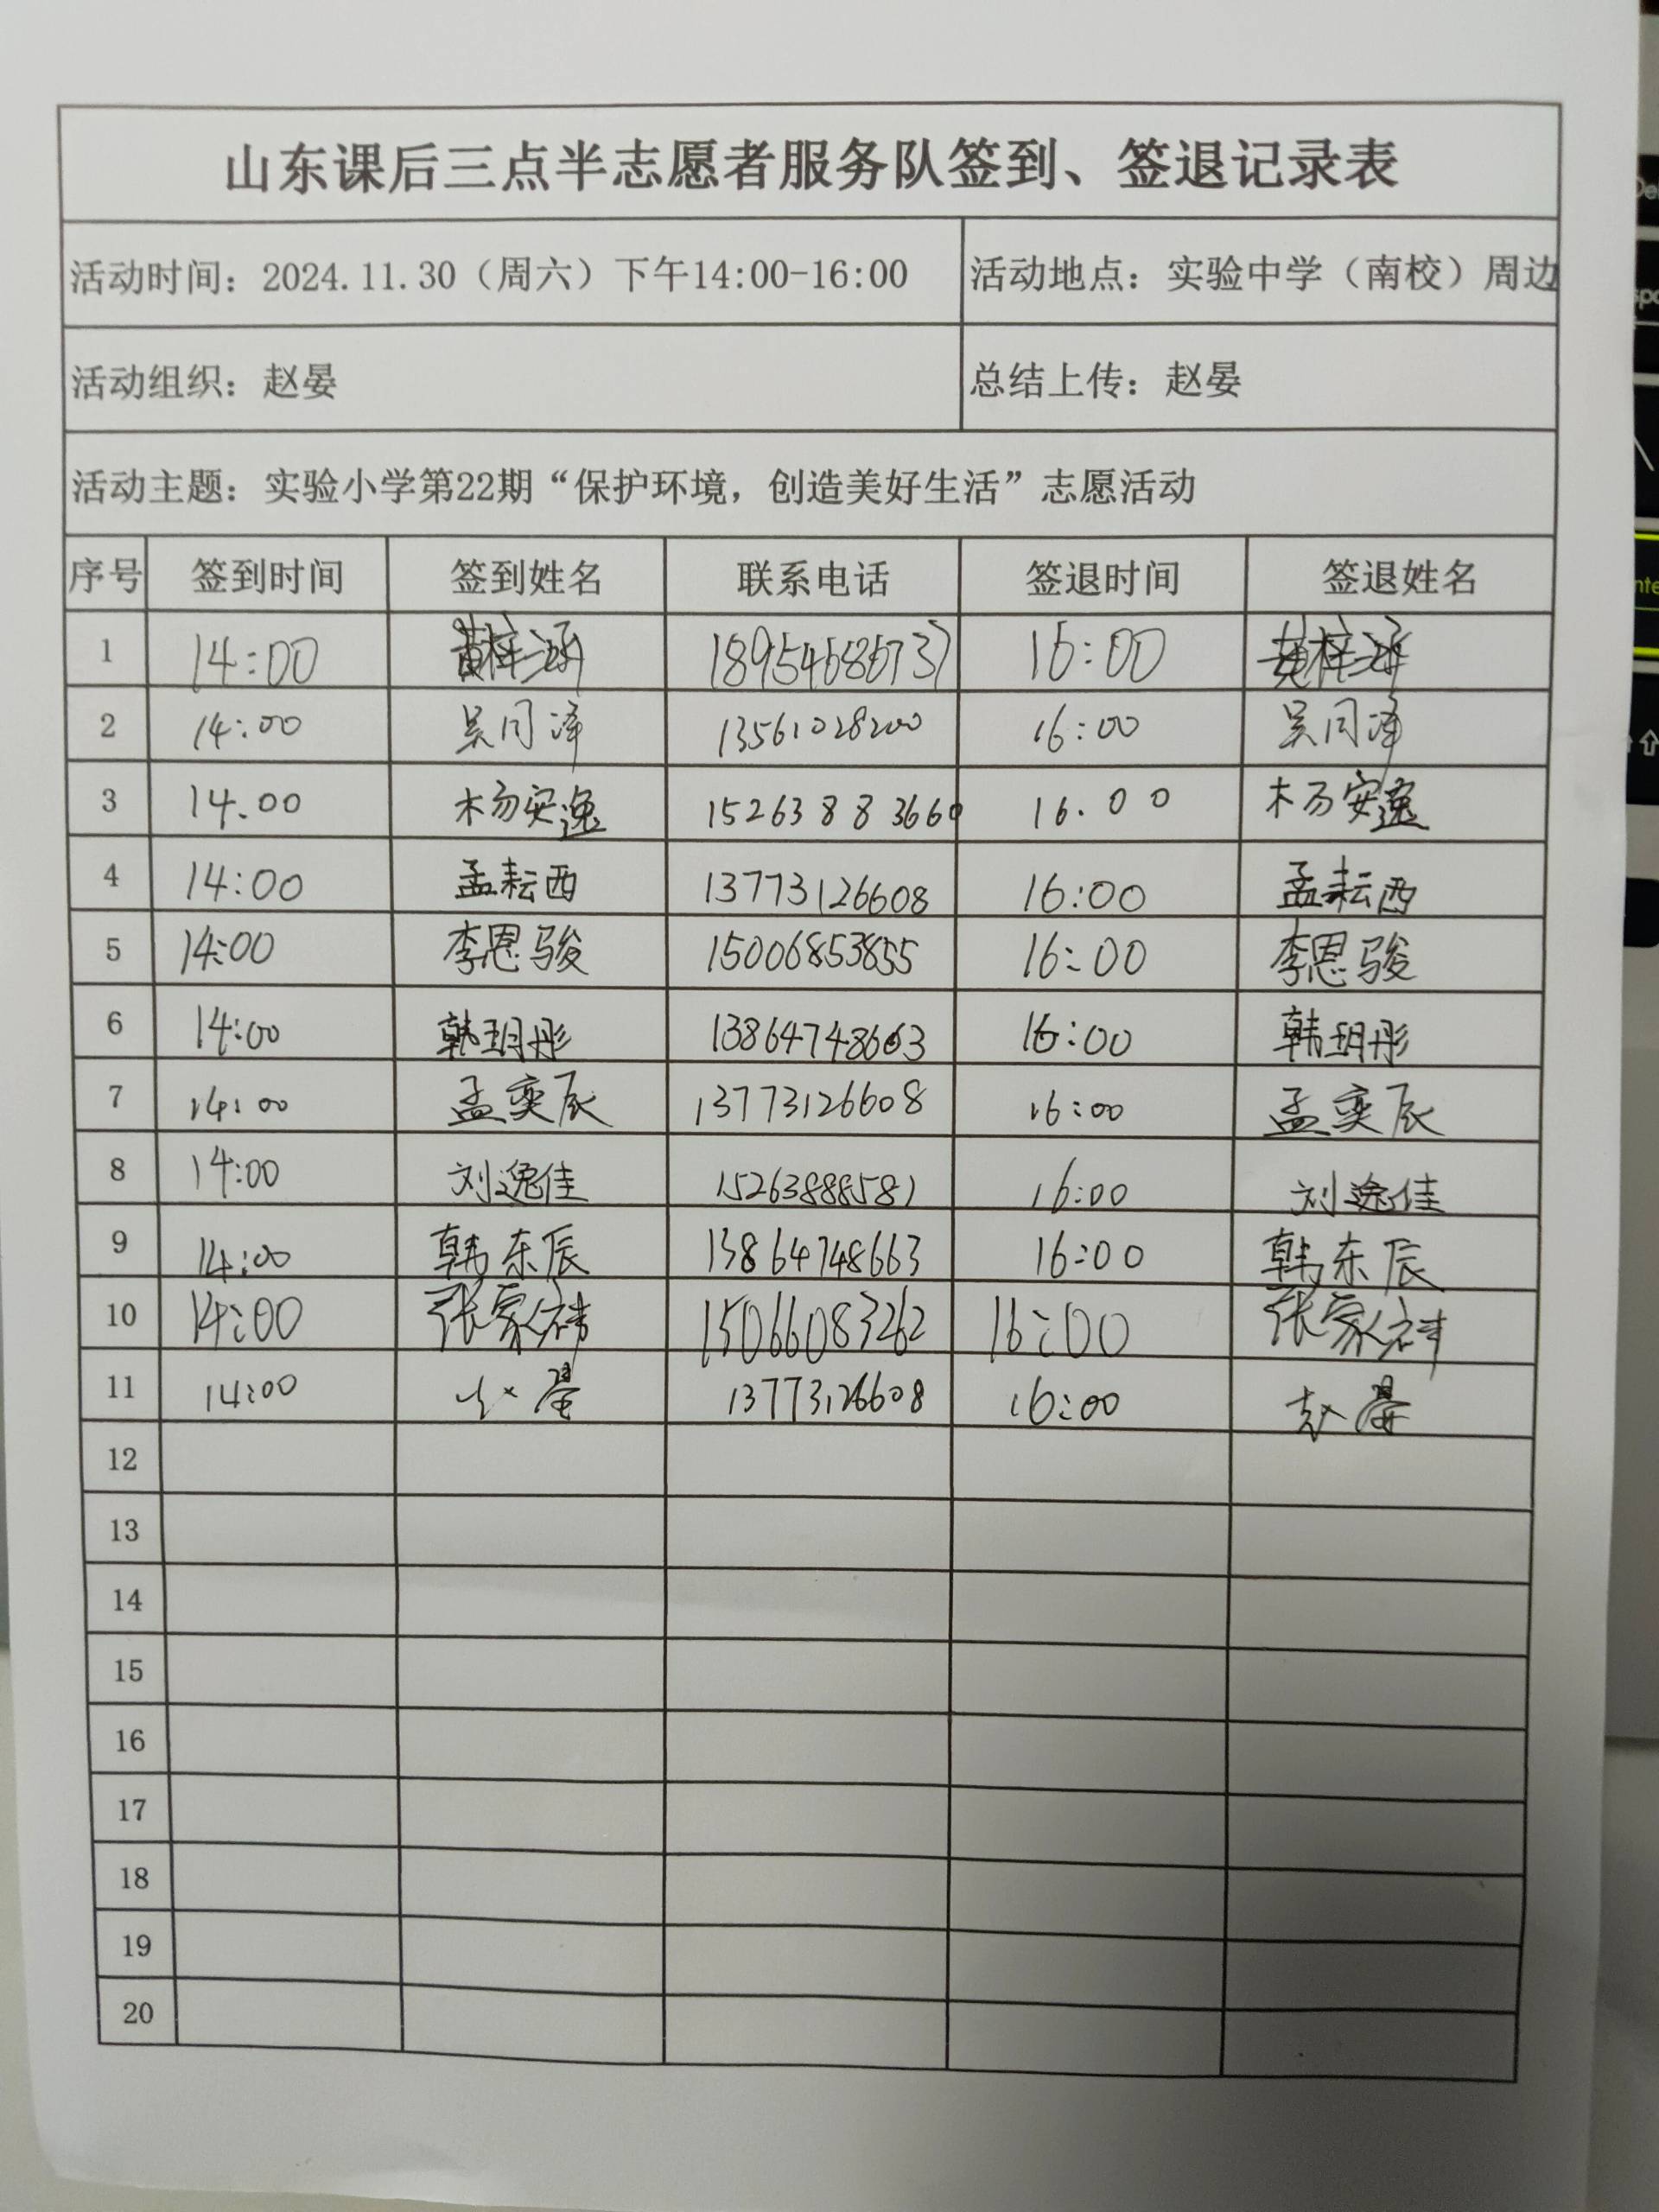 山东课后三点半志愿者服务队签到、签退记录表
活动时间：2024.11.30（周六）下午14:00-16:00 活动地点：实验中学（南校）周边
活动组织：赵晏 总结上传：赵晏
活动主题：实验小学第22期“保护环境，创造美好生活”志愿活动
序号 签到时间 签到姓名 联系电话 签退时间 签退姓名
1 14:00 黄梓涵 18954686737 16:00 黄梓涵
2 14:00 吴同泽 13561028200 16:00 吴同泽
3 14.00 杨安逸 15263883660 16.00 杨安逸
4 14:00 孟耘西 13773126608 16:00 孟耘西
5 14:00 李恩骏 15006853855 16:00 李恩骏
6 14:00 韩玥彤 13864748663 16:00 韩玥彤
7 14:00 孟奕辰 13773126608 16:00 孟奕辰
8 14:00 刘逸佳 15263888581 16:00 刘逸佳
9 14:00 韩东辰 13864748663 16:00 韩东辰
10 14:00 张家 15066083262 16:00 张家
11 14:00 赵晏 13773126608 16:00 赵晏
12
13
14
15
16
17
18
19
20